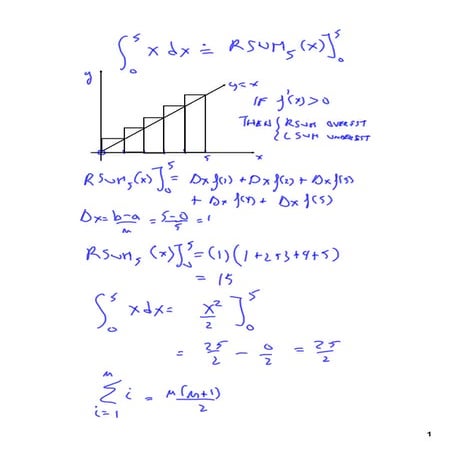 ∫₀⁵ x dx ≐ RSUM₅(x)]₀⁵
y
y=x
IF f'(x)>0
THEN { RSUM OVEREST
{ LSUM UNDEREST
5 x
RSUM₅(x)]₀⁵ = Dx f(1) + Dx f(2) + Dx f(3)
+ Dx f(4) + Dx f(5)
Dx = b-a/n = 5-0/5 = 1
RSUM₅(x)]₀⁵ = (1)(1+2+3+4+5)
= 15
∫₀⁵ x dx = x²/2 ]₀⁵
= 25/2 - 0/2 = 25/2
n∑i=1 i = n(n+1)/2
1